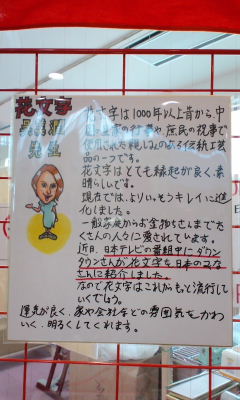 花文字
先生
花文字は1000年以上昔から、中
行事や、庶民の祝事で
使用された親しみのある伝統工芸
品の一つです。
花文字はとても縁起が良く、素
晴らしいです。
現在では、よりいっそうキレイに進
化しました。
一般家庭からお金持ちさんまでた
くさんの人々に愛されています。
近日、日本テレビの番組中にダウン
タウンさんが花文字を日本のみな
さんに紹介しました。
なので花文字はこれからもっと流行して
いくでしょう。
運気が良く、家や会社などの雰囲気をかわ
いく、明るくしてくれます。